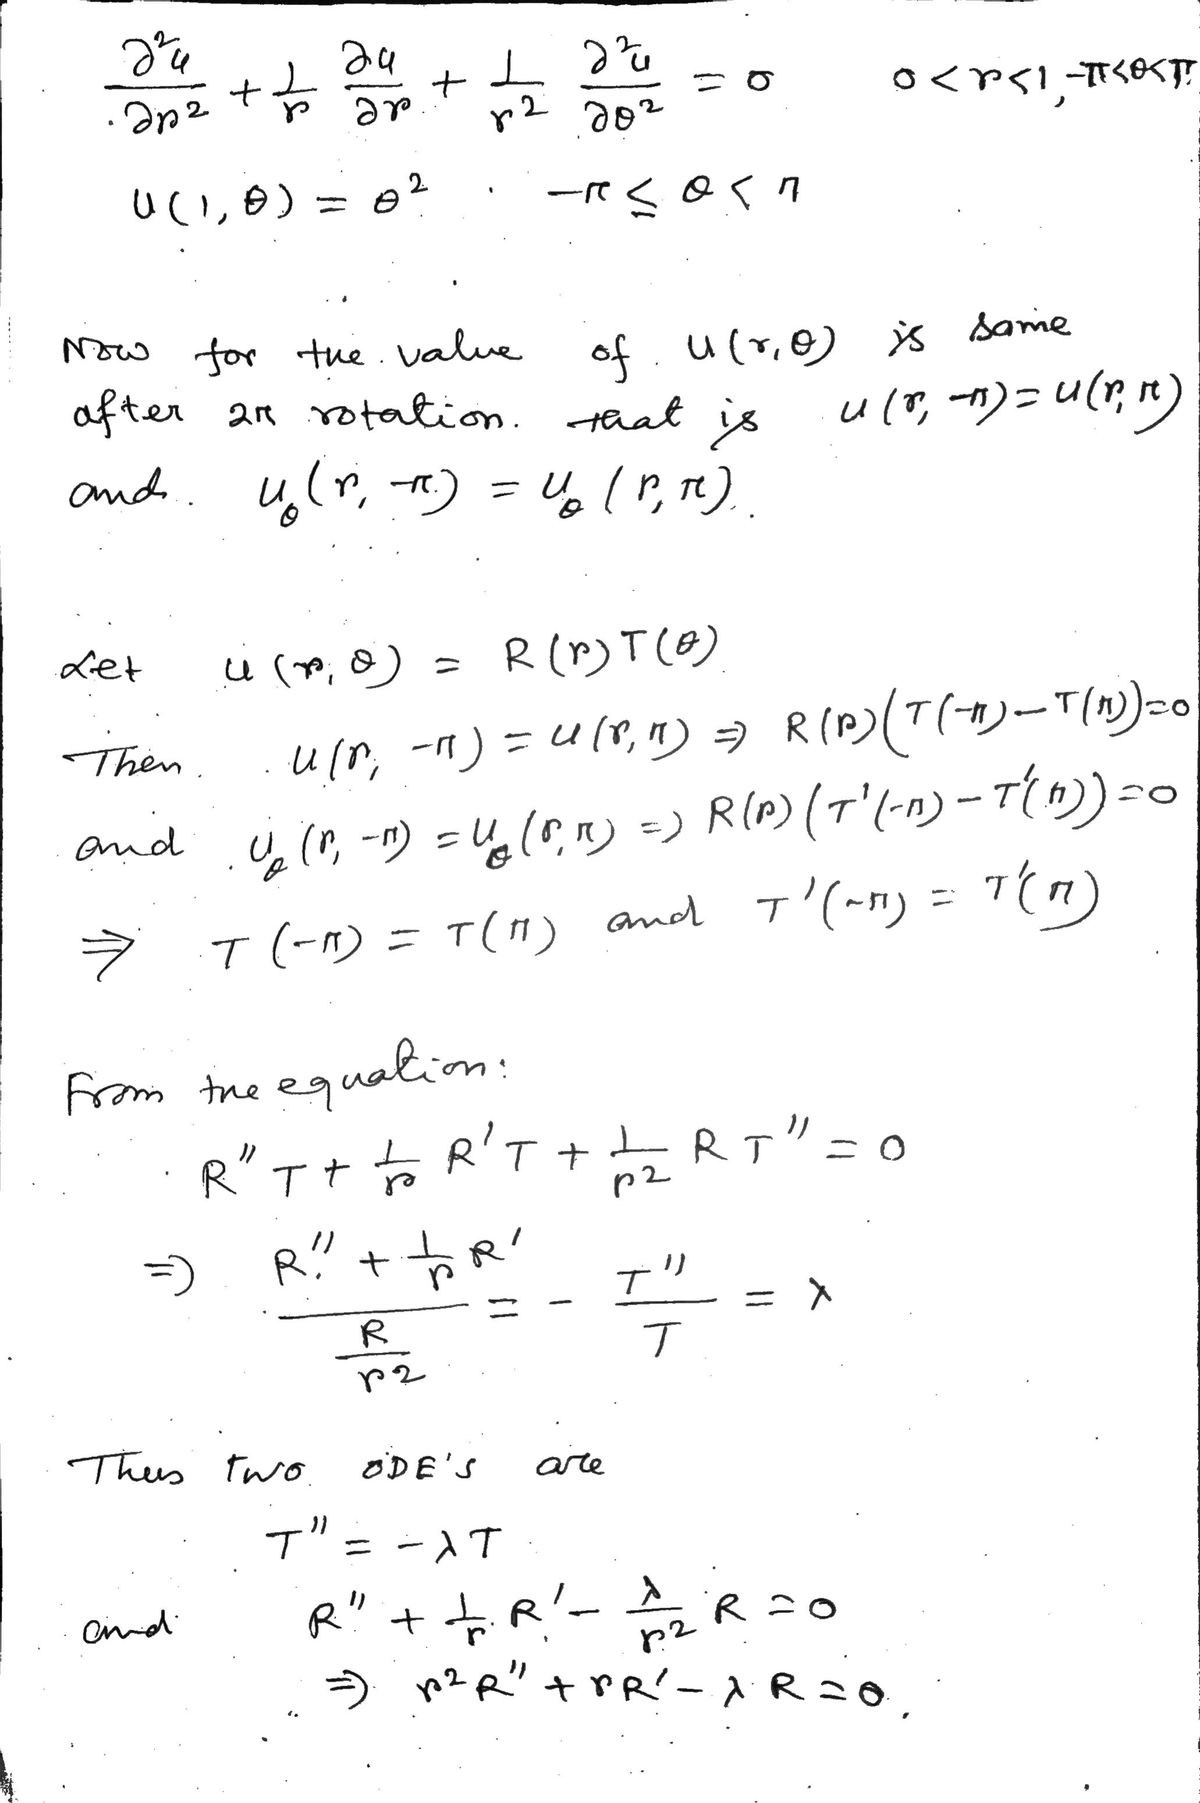 ∂²u/∂r² + 1/r ∂u/∂r + 1/r² ∂²u/∂θ² = 0   0 < r < 1, -π < θ < π
u(1, θ) = θ²   -π ≤ θ < π
Now for the value of u(r, θ) is same
after 2π rotation. that is u(r, -π) = u(r, π)
and u_θ(r, -π) = u_θ(r, π).
Let u(r, θ) = R(r) T(θ)
Then u(r, -π) = u(r, π) ⇒ R(r)(T(-π) - T(π)) = 0
and u_θ(r, -π) = u_θ(r, π) ⇒ R(r)(T'(-π) - T'(π)) = 0
⇒ T(-π) = T(π) and T'(-π) = T'(π)
From the equation:
R''T + 1/r R'T + 1/r² R T'' = 0
⇒ (R'' + 1/r R')/(R/r²) = - T''/T = λ
Thus two ODE's are
T'' = -λT
and R'' + 1/r R' - λ/r² R = 0
⇒ r²R'' + rR' - λR = 0.